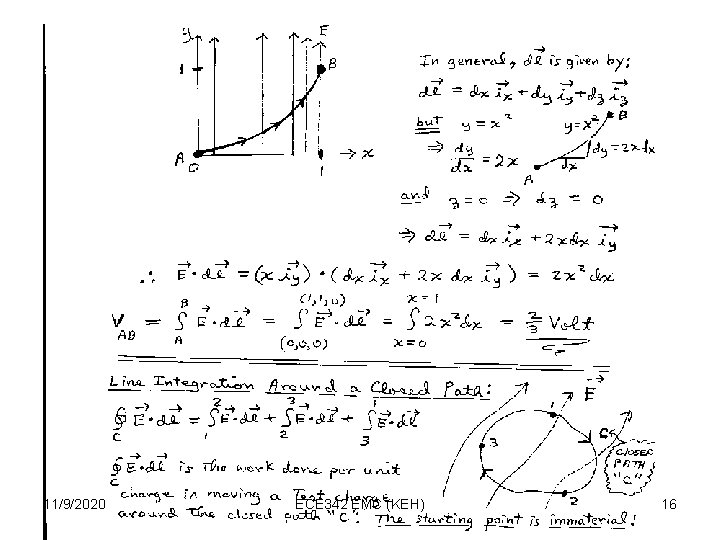 y E
1 B
A 0 1 → x
In general, dl⃗ is given by:
dl⃗ = dx i⃗x + dy i⃗y + dz i⃗z
but y = x² y=x² B
⇒ dy/dx = 2x dx dy = 2x dx
A
and z = 0 ⇒ dz = 0
⇒ dl⃗ = dx i⃗x + 2x dx i⃗y
∴ E⃗·dl⃗ = (x i⃗y) · (dx i⃗x + 2x dx i⃗y) = 2x² dx
V_AB = ∫_A^B E⃗·dl⃗ = ∫_(0,0,0)^(1,1,0) E⃗·dl⃗ = ∫_x=0^x=1 2x² dx = 2/3 Volt
Line Integration Around a Closed Path:
∮_C E⃗·dl⃗ = ∫_1^2 E⃗·dl⃗ + ∫_2^3 E⃗·dl⃗ + ∫_3^1 E⃗·dl⃗
E⃗
1
C
3
2
CLOSED
PATH
"C"
∮_C E⃗·dl⃗ is The work done per unit
charge in moving a Test charge
around The closed path "C". The starting point is immaterial!
11/9/2020 ECE 342 EMC (KEH) 16